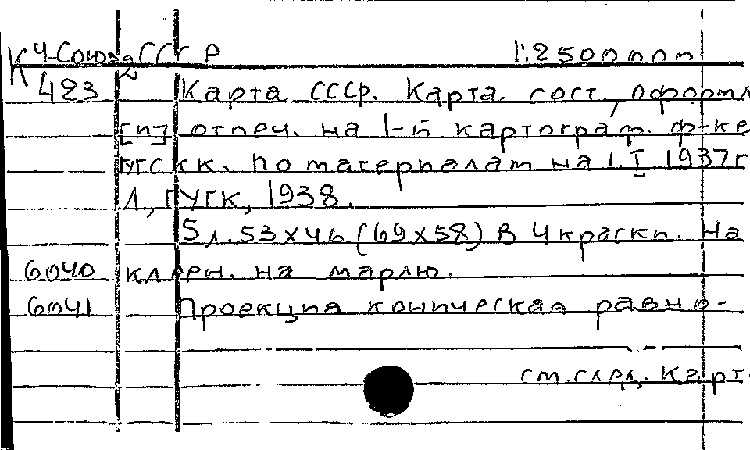 К 4-Союз СССР 1:2500000
2
423 Карта СССР. Карта сост., оформл
[и] отпеч. на 1-й картограф. ф-ке
УГСКК. По материалам на 1.I 1937г
Л., ГУГК, 1938.
5л. 53х46 (69х58) в 4 краски. На
6040 клеен. на марлю.
6041 Проекция коническая равно-
см. след. карт